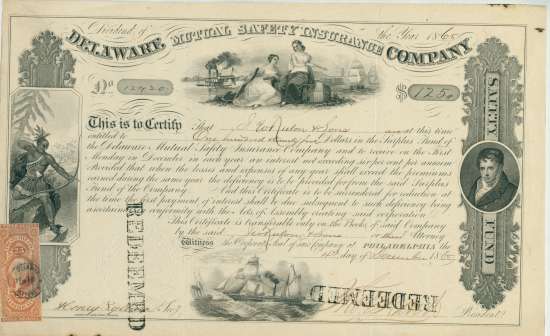 Dividend of the Year 1865
DELAWARE MUTUAL SAFETY INSURANCE COMPANY
No 12920 $ 125
This is to Certify That & Sons at this time
entitled to One hundred Dollars in the Surplus Fund of
the Delaware Mutual Safety Insurance Company and to receive on the First
Monday in December in each year an interest not exceeding six per cent per annum
Provided that when the losses and expenses of any year shall exceed the premiums
earned during the same year the deficiency is to be provided for from the said Surplus
Fund of the Company. And this Certificate is to be intended for reduction at
the time the first payment of interest shall be due subsequent to such deficiency being
ascertained in conformity with the Acts of Assembly creating said corporation
This Certificate is transferable only on the Books of said Company
by the said & Sons or their Attorney
Witness the Corporate Seal of said Company at PHILADELPHIA the
day of December 1865
SAFETY
FUND
REDEEMED
REDEEMED
Henry Secy
President